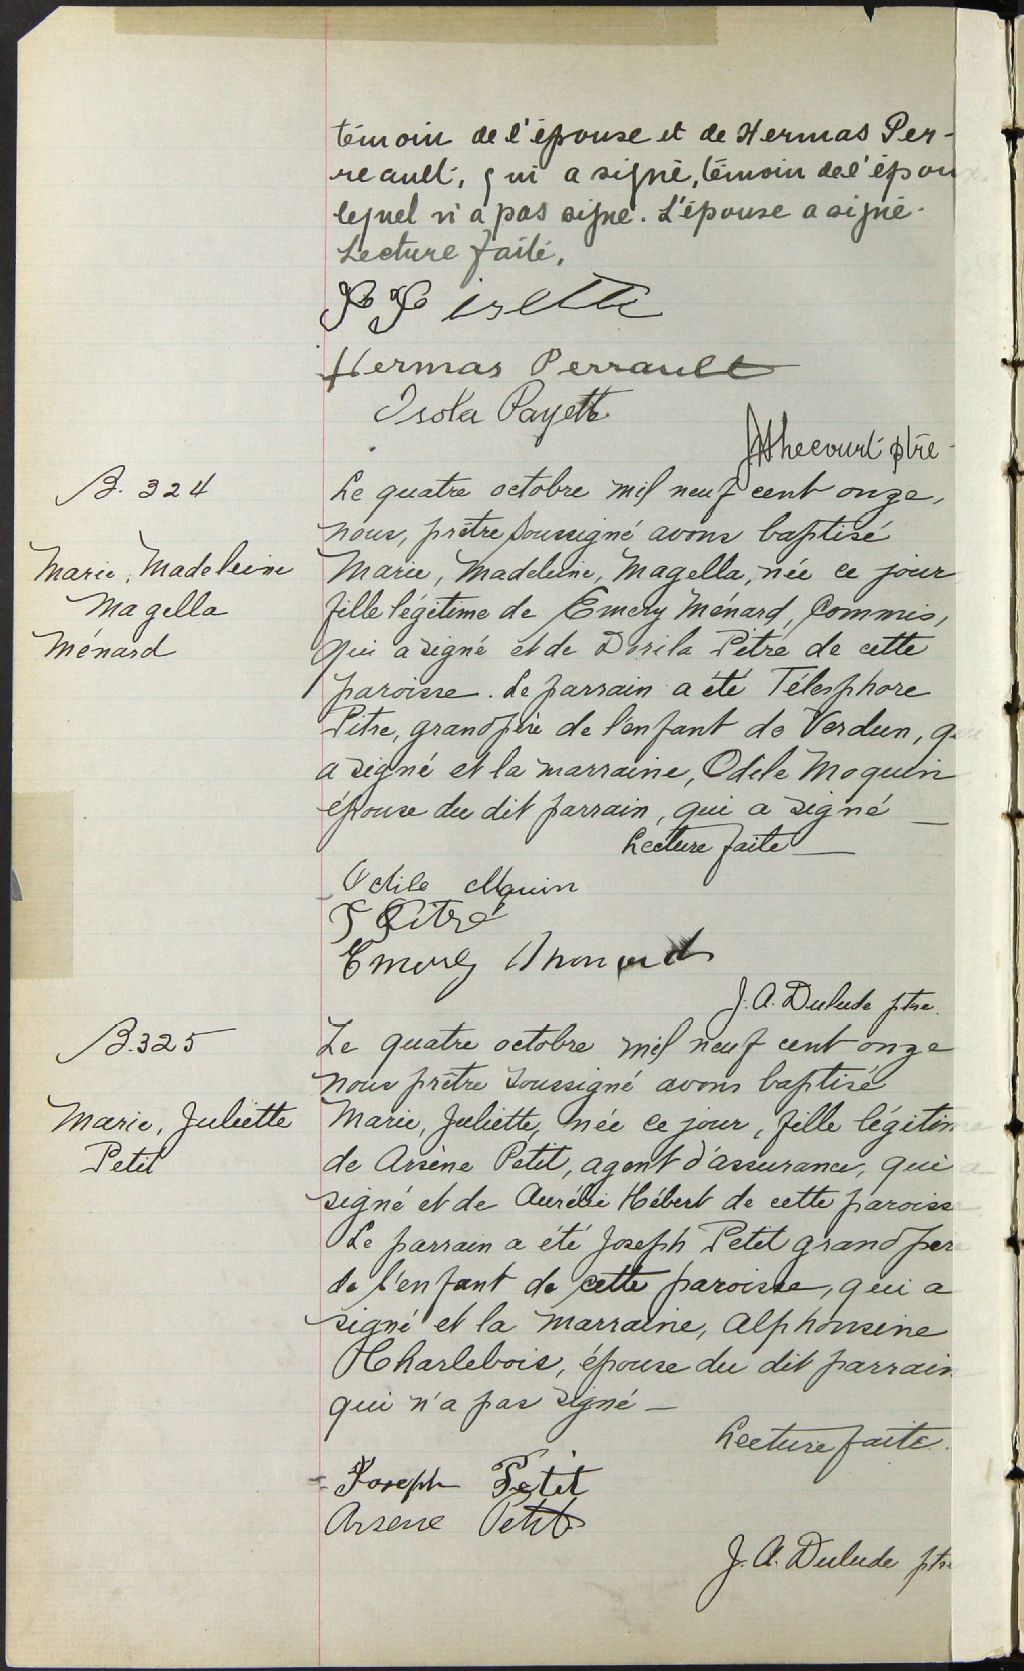 témoin de l'épouse et de Hermas Per-
reault, qui a signé, témoin de l'époux
lequel n'a pas signé. L'épouse a signé.
Lecture faite,
Hermas Perrault
Isola Payette
ptre
B. 324
Le quatre octobre mil neuf cent onze,
nous, prêtre soussigné avons baptisé
Marie, Madeleine
Magella
Ménard
Marie, Madeleine, Magella, née ce jour
fille légitime de Emery Ménard, Commis,
qui a signé et de Dorila Pitre de cette
paroisse. Le parrain a été Télesphore
Pitre, grand père de l'enfant de Verdun, qui
a signé et la marraine, Odile Moquin
épouse du dit parrain, qui a signé —
Lecture faite —
Odile Mquin
T Pitre
Emery Menard
J. A. Dulude ptre.
B. 325
Le quatre octobre mil neuf cent onze
nous prêtre soussigné avons baptisé
Marie, Juliette
Petit
Marie, Juliette, née ce jour, fille légitime
de Arsène Petit, agent d'assurance, qui a
signé et de Aurélie Hébert de cette paroisse
Le parrain a été Joseph Petit grand père
de l'enfant de cette paroisse, qui a
signé et la marraine, Alphonsine
Charlebois, épouse du dit parrain
qui n'a pas signé —
Lecture faite.
Joseph Petit
Arsene Petit
J. A. Dulude ptre